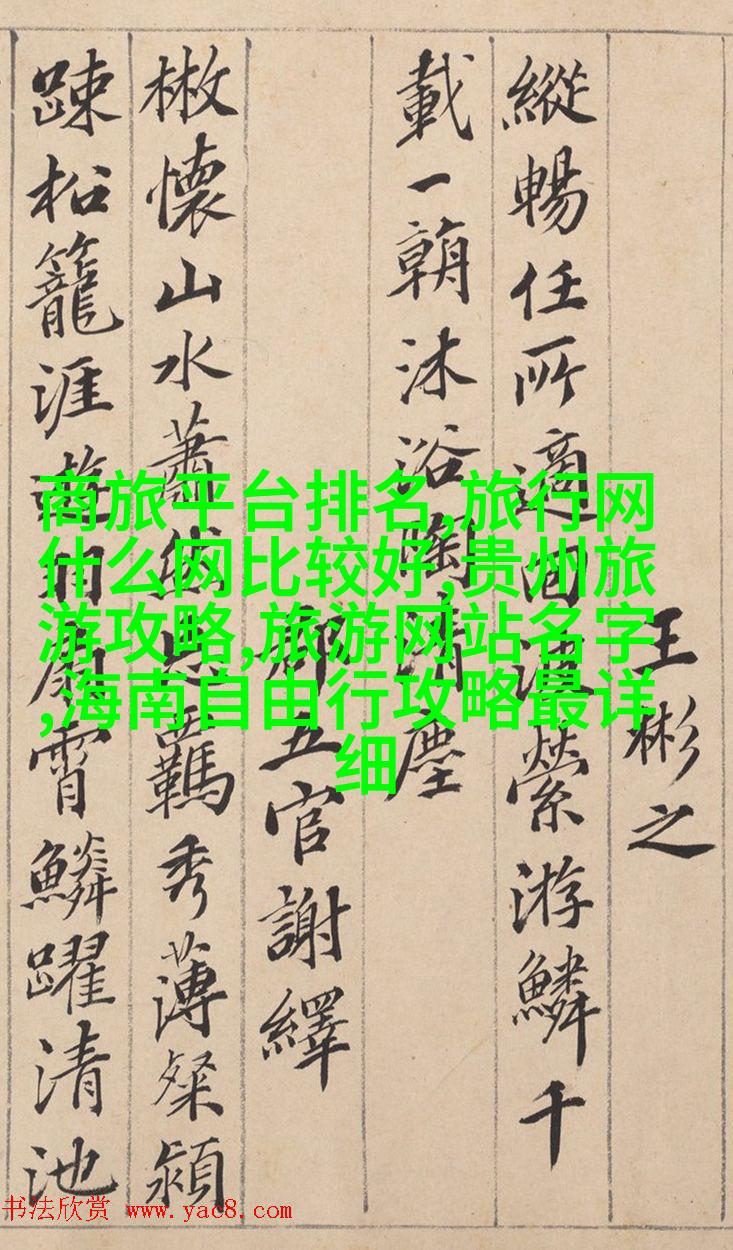 王彬之
縱暢任所適回波縈游鱗千
載一朝沐浴陶清塵
郡五官謝繹
㪚懷山水蕭然忘羈秀薄粲穎
疎松籠涯遊羽扇霄鱗躍清池
商旅平台排名,旅行网
什么网比较好,贵州旅
游攻略,旅游网站名字
,海南自由行攻略最详
细
书法欣赏 www.yac8.com